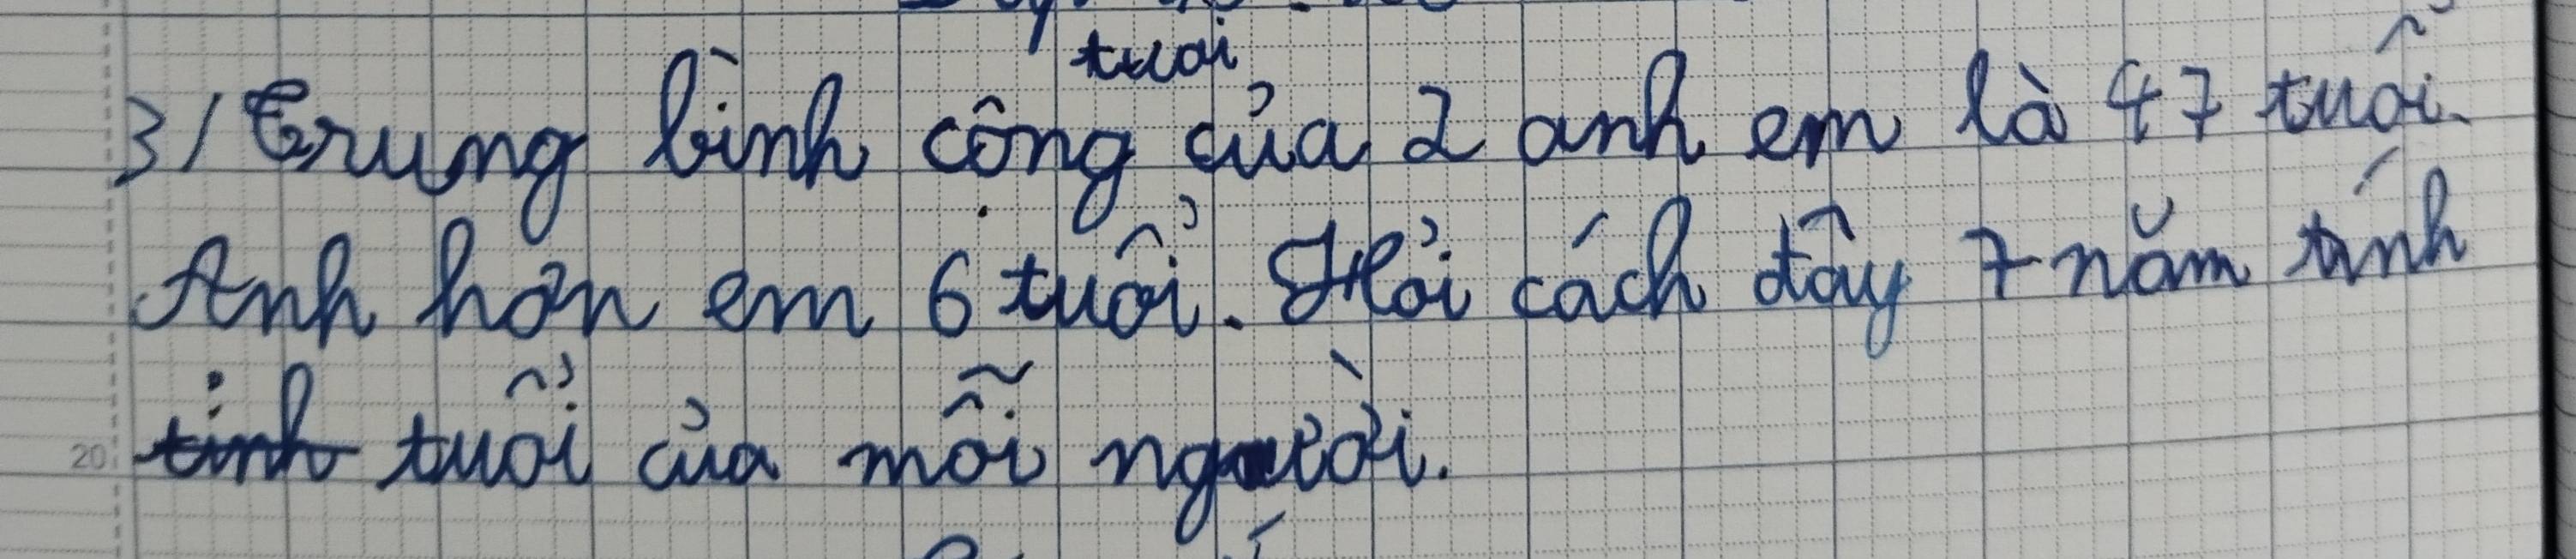 tuoi
3/ Trung bình cộng của 2 anh em là 47 tuổi.
Anh hơn em 6 tuổi. Hỏi cách đây 7 năm tính
tính tuổi của mỗi người.
20